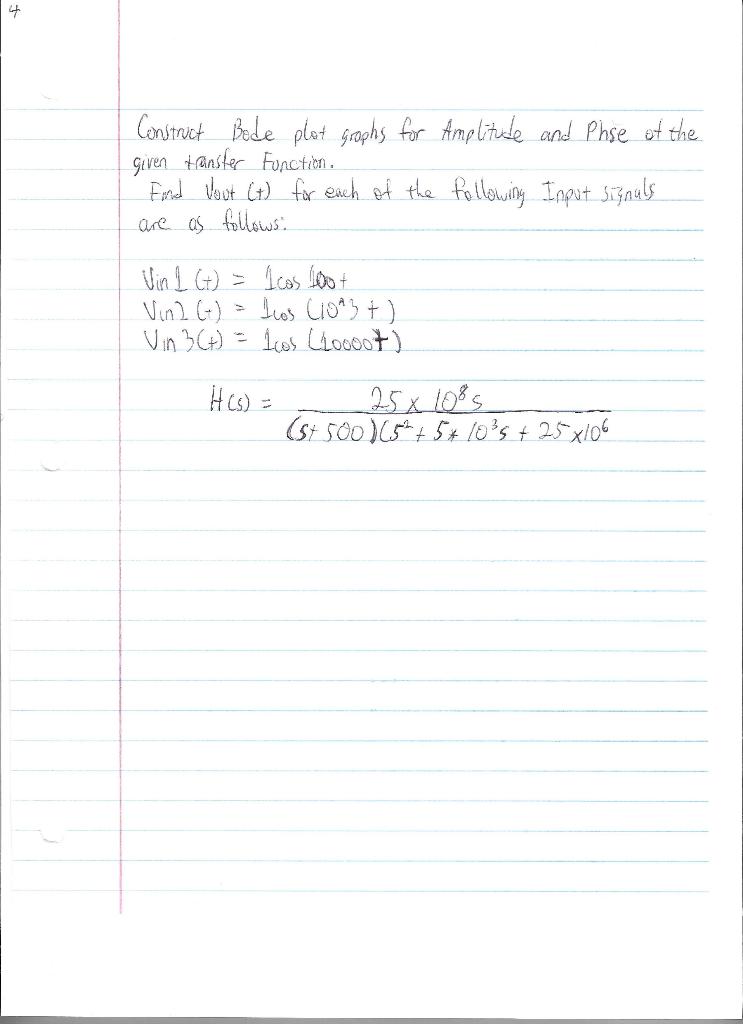 4
Construct Bode plot graphs for Amplitude and Phse of the
given transfer Function.
Find Vout (t) for each of the following Input signals
are as follows:
Vin 1 (t) = 1cos 100t
Vin2 (t) = 1cos (10^3 t)
Vin 3(t) = 1cos (10000t)
H(s) = 25 x 10⁸s
(s+ 500)(s² + 5* 10³s + 25 x10⁶